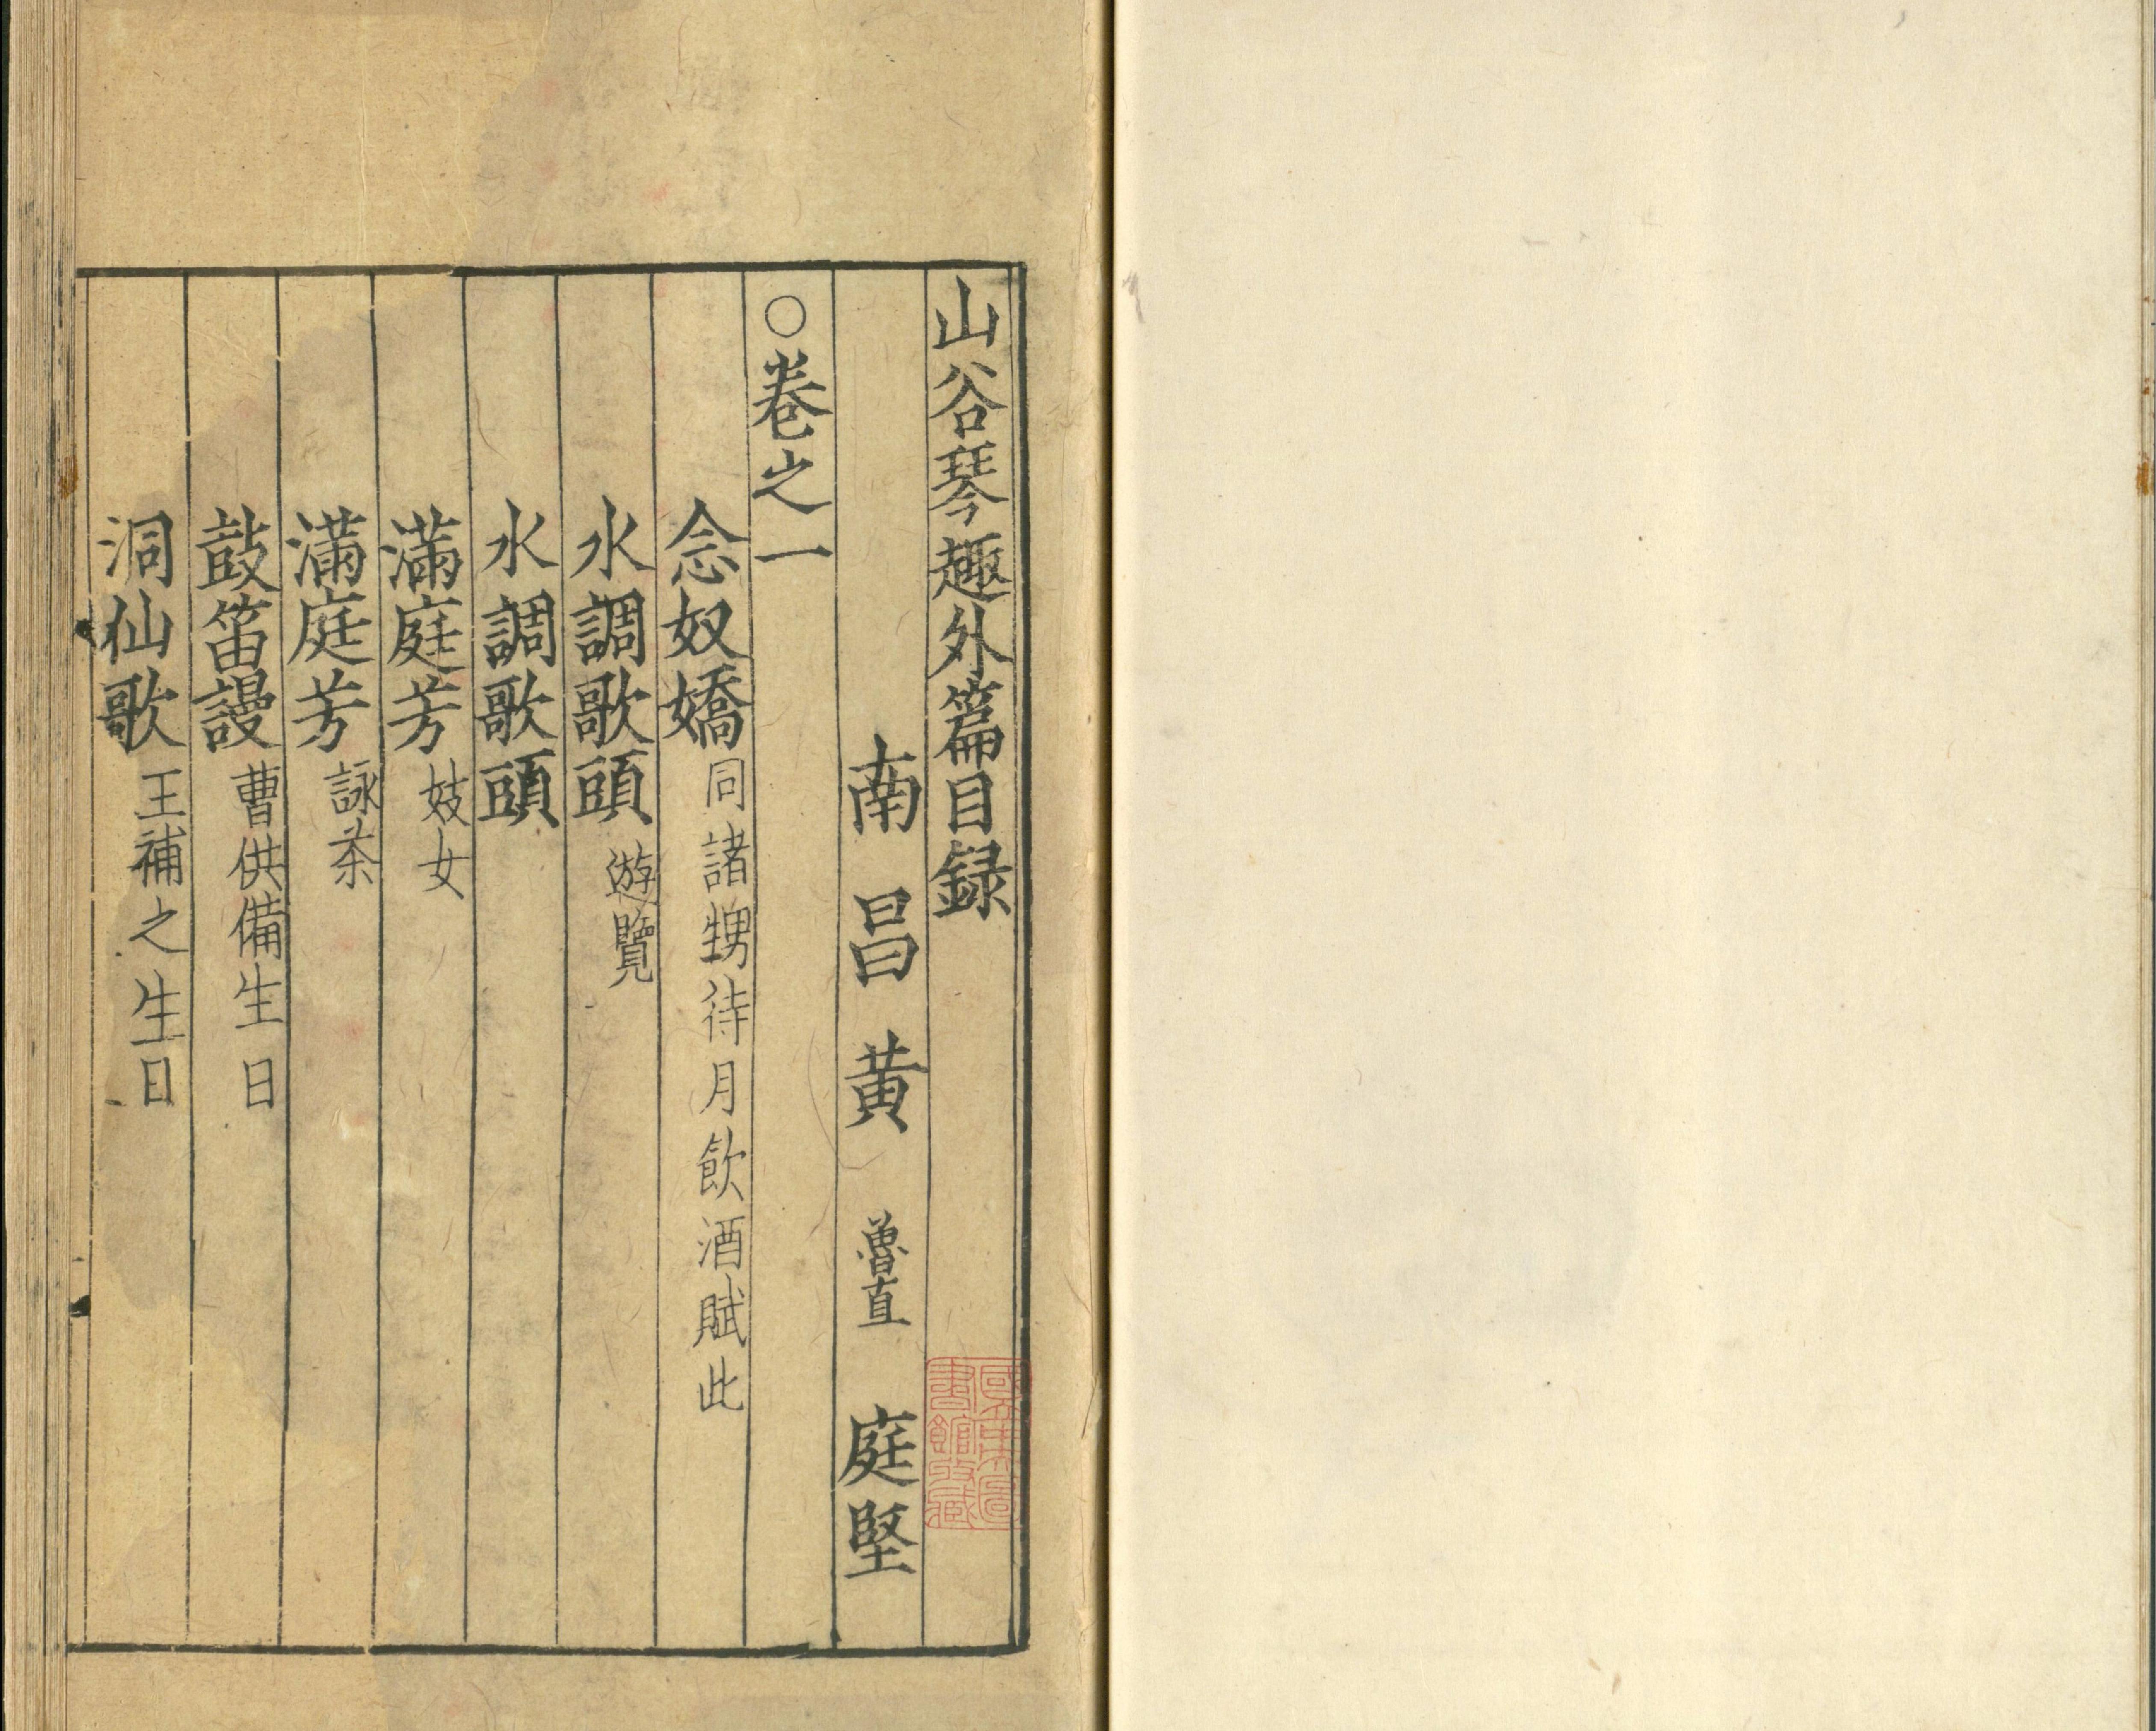 山谷琴趣外篇目録
南昌黄魯直庭堅
○卷之一
念奴嬌同諸甥待月飲酒賦此
水調歌頭遊覽
水調歌頭
滿庭芳妓女
滿庭芳詠茶
鼓笛謾曹供備生日
洞仙歌王補之生日
國立中央圖書館收藏